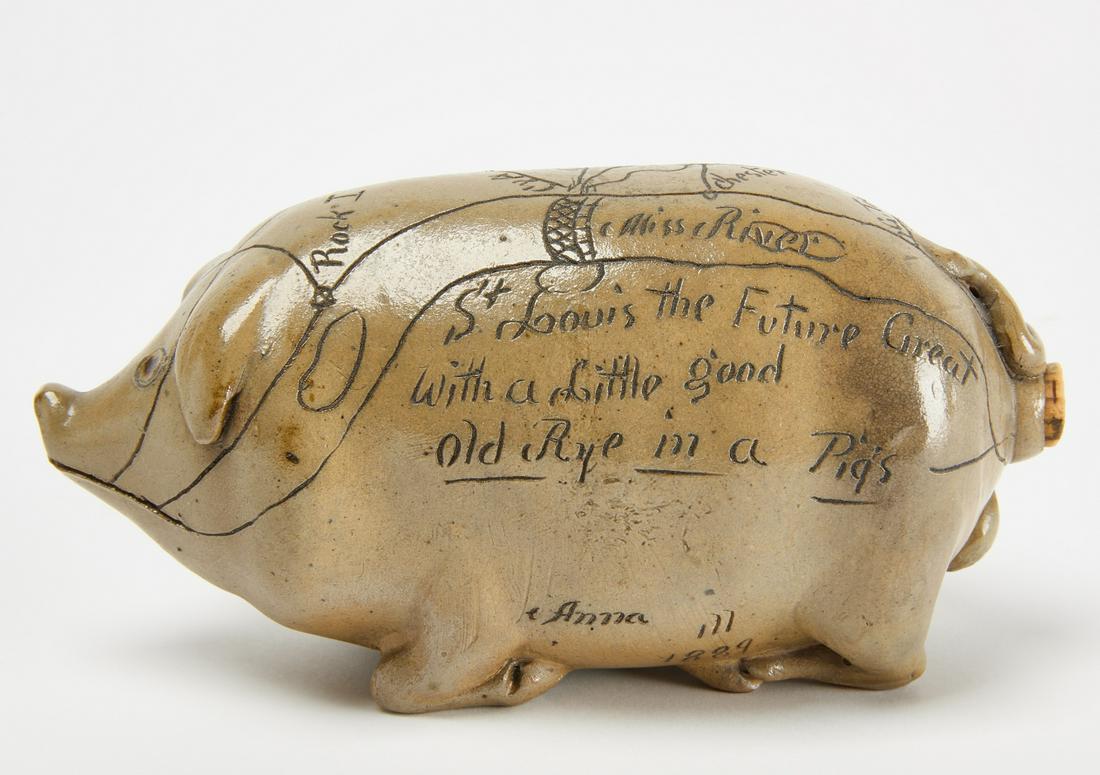 Rock I
Chester
Miss River
St Louis the Future Great
With a Little good
Old Rye in a Pig's
Anna Ill
1889